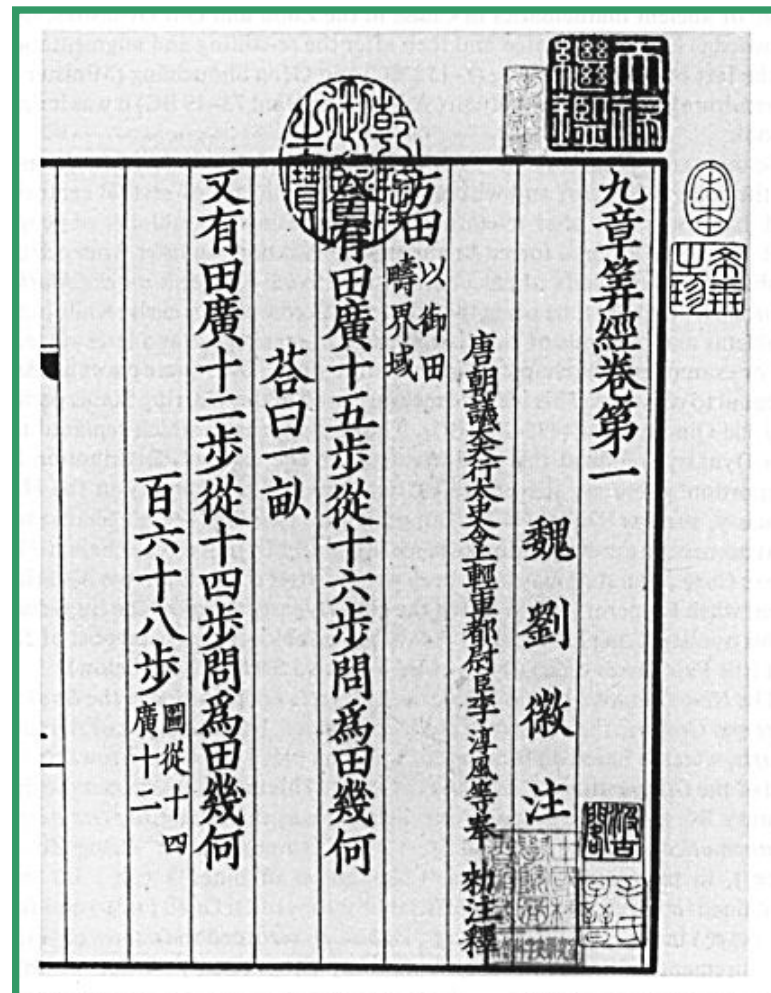 天祿繼鑑
乾隆御覽之寶
希世之珍
九章筭經卷第一
魏 劉 徽 注
唐朝議大夫行太史令上輕車都尉臣李淳風等奉 勑注釋
方田以御田
疇界域
今有田廣十五步從十六步問爲田幾何
荅曰一畝
又有田廣十二步從十四步問爲田幾何
百六十八步圖從十四
廣十二
汲古閣